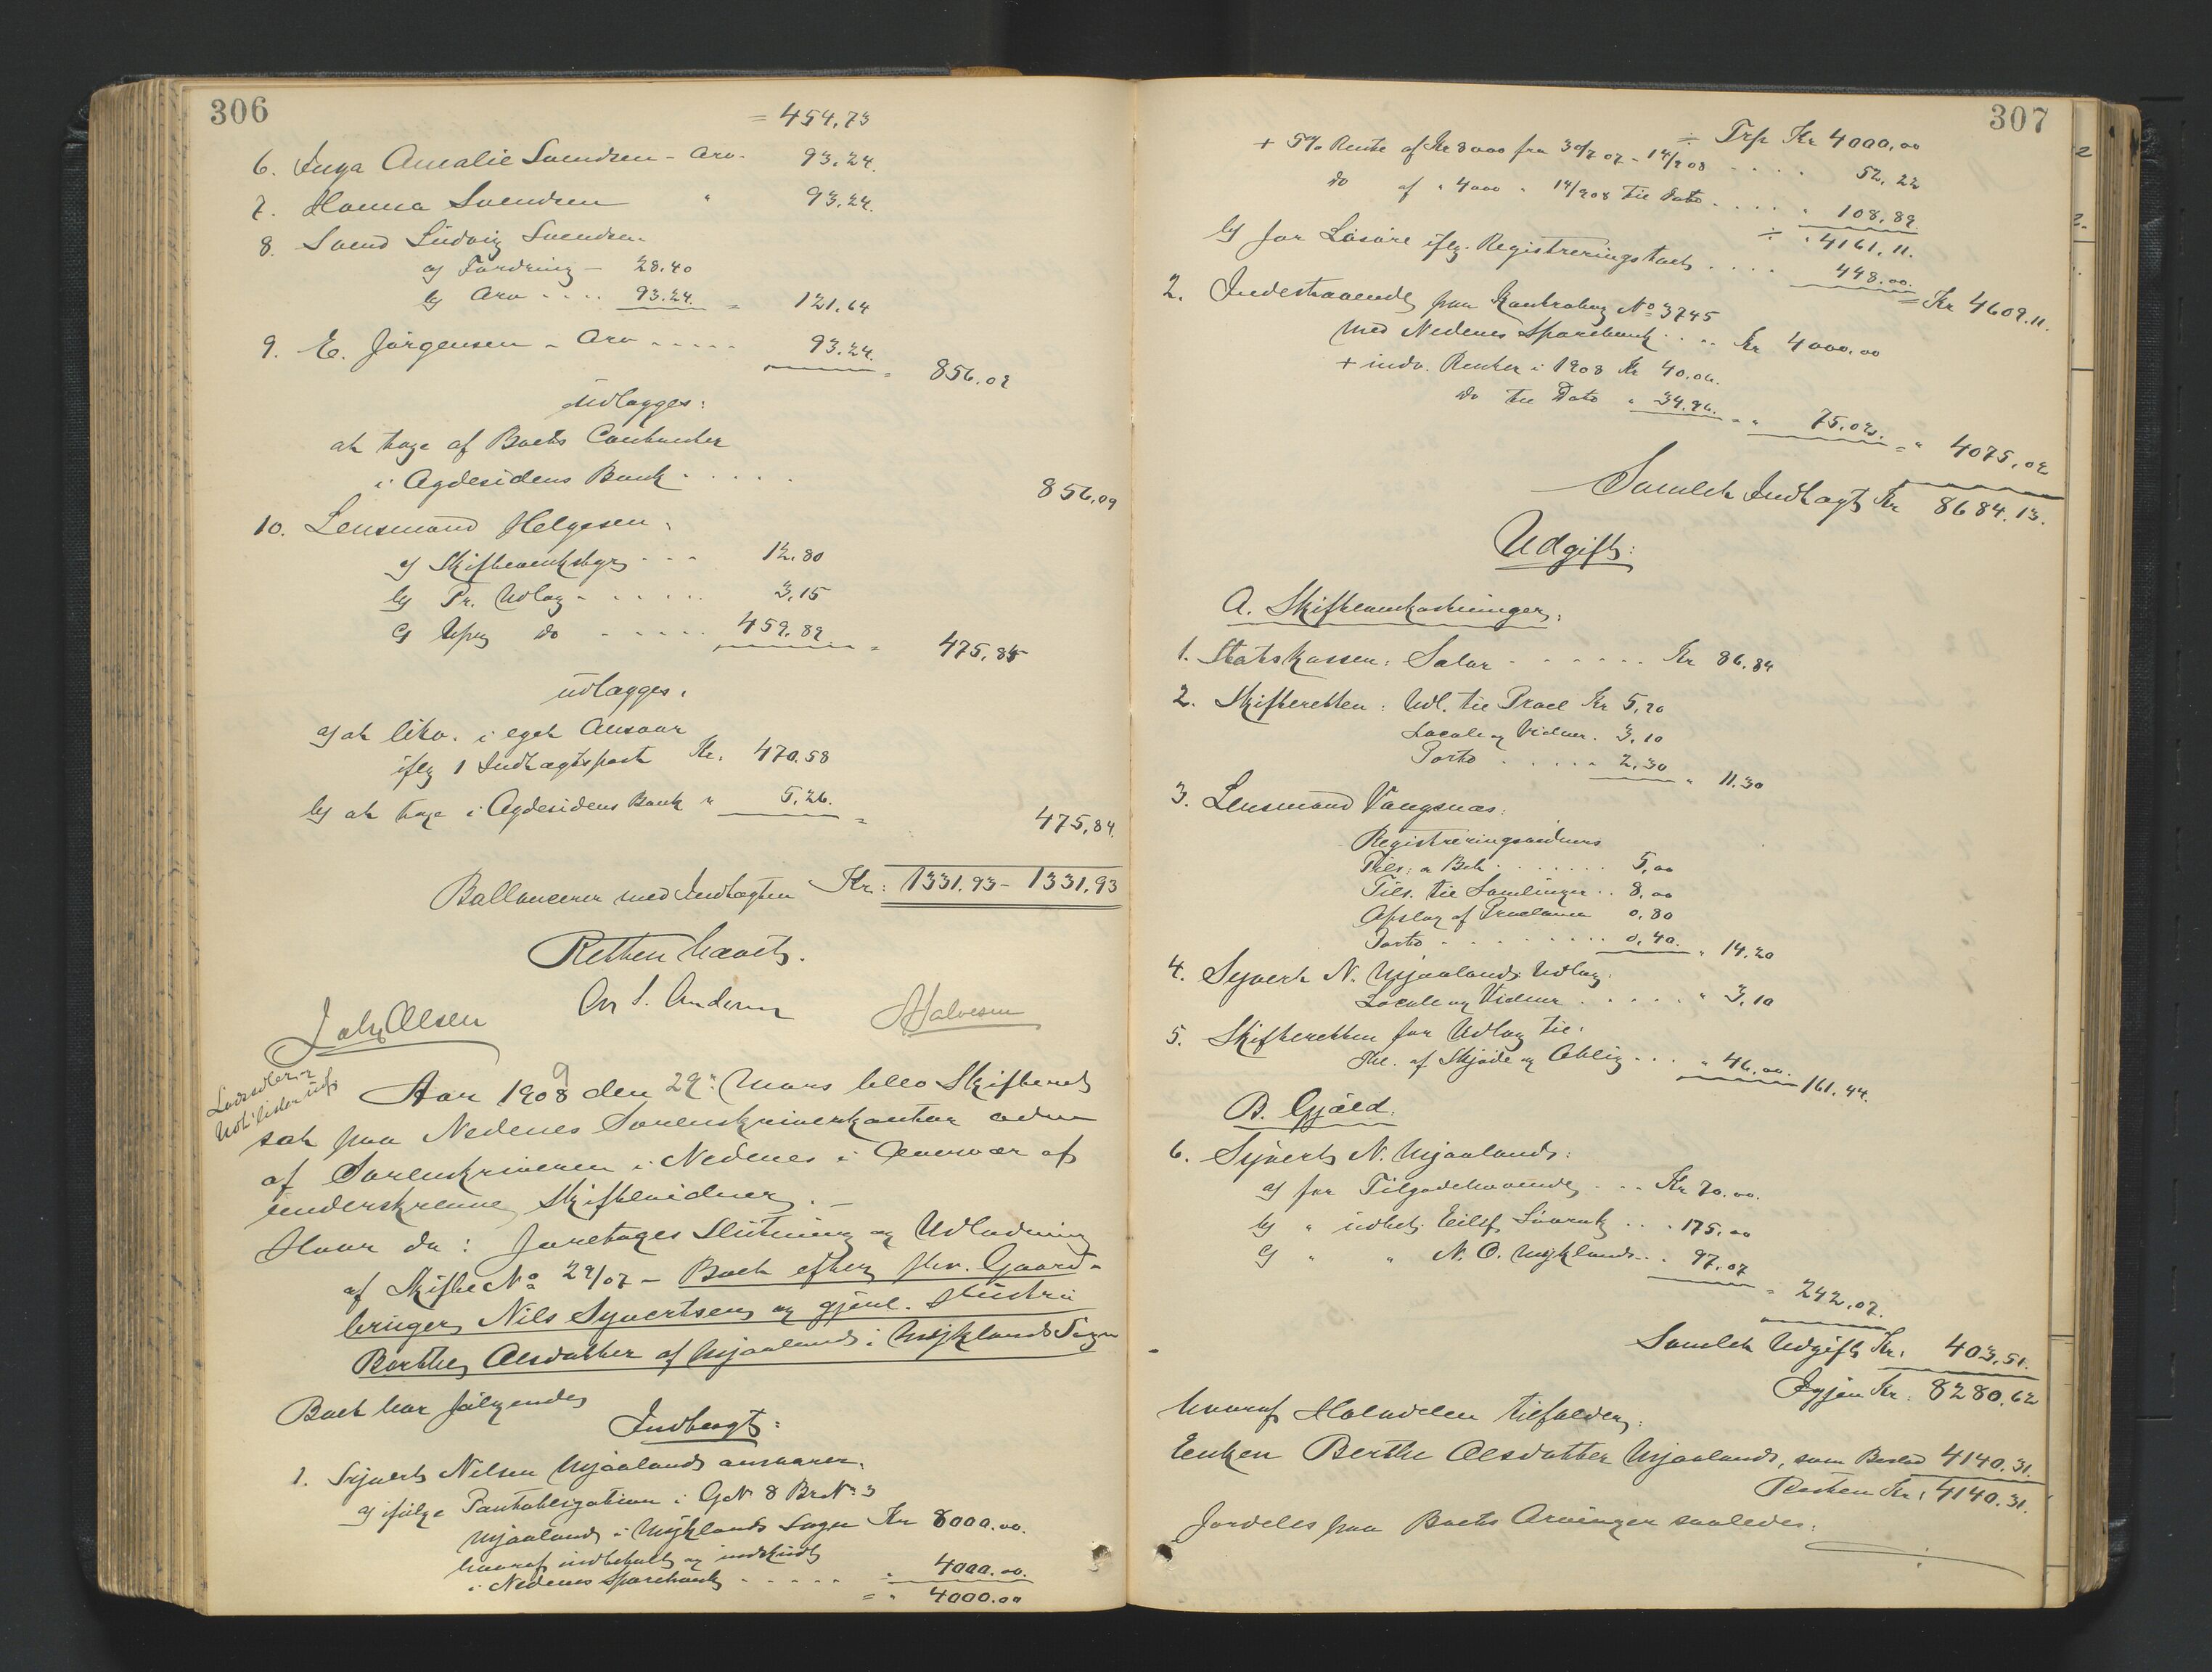 306
= 454,73
6. Inga Amalie Svendsen - Arv - 93.24.
7. Hanna Svendsen " 93.24.
8. Svend Ludvig Svendsen
a) Fordring - 28.40
b) Arv .... 93.24. = 121,64
9. E. Jörgensen - Arv ..... 93.24. = 856.09
Udlægges:
at hæve af Boets Contanter
i Agdesidens Bank ..... 856,09
10. Lensmand Helgesen:
a) Skifteomkstgr ... 12.80
b) Pr. Udlæg ..... 3,15
c) do ..... 459.89 = 475,84
udlægges:
a) at likv. i eget Ansvar
iflg 1 Indtægtspost Kr. 470.58
b) at hæve i Agdesidens Bank " 5.26. = 475,84.
Ballancerer med Indtægten Kr: 1331.93 - 1331,93
Retten hævet.
Joh. Olsen
And. S. Andersen
A Halvorsen
Lodsedler og
Aar 1909 den 29. Mars blev Skifteret
sat paa Nedenes Sorenskriverkontor adm
af Sorenskriveren i Nedenes i Overvær af
underskrevne Skiftevidner. -
Hvor da: Foretoges Slutning og Udlodning
af Skifte No 29/07 - Boet efter Gaard-
bruger Nils Syvertsen og gjenl. Hustru
Berthe Olsdatter af Mjaaland i Mykland Sogn
Boet har følgende
Indtægt:
1. Syvert Nilsen Mjaaland ansvarer.
a) ifølge Pantobligation i GNo 8 BrNo 3
Mjaaland i Mykland Sogn Kr 8000.00.
hvoraf indbetalt og indskudt
i Nedenes Sparebank ..... 4000.00.
= " 4000.00
307
÷ Trp Kr 4000,00
+ 5% Rente af Kr 8000 fra 30/7 07 - 14/9 08 .... 52,22
do af " 4000 " 14/9 08 til Dato .... " 108,89.
÷ " 4161,11.
b) for Løsøre iflg. Registreringsforr .... 448.00. = Kr 4609.11.
2. Indestaaende paa Kontrabog No 3745
med Nedenes Sparebank .... Kr 4000.00
+ indv. Renter i 1908 Kr 40.06.
do til Dato " 34.96. = " 75.02. = " 4075,02
Samlet Indtægt Kr 8684.13.
Udgift:
A. Skifteomkostninger:
1. Statskassen: Salær ...... Kr 86.84
2. Skifteretten: Udl. til Procl Kr 5,90
Locale og Vidner. 3,10
Porto ..... 2,30 " 11.30
3. Lensmand Vangsnæs:
Registreringsvidners
Tils: a Bek ...... 5,00
Tils. til Samlinger .. 8,00
Opslag af Proclama 0,80
Porto ........ 0,40. " 14.20
4. Syvert N. Mjaaland: Udlæg:
Locale og Vidner ..... " 3,10
5. Skifteretten for Udlæg til:
Thl. af Skjøde og Oblig ... " 46.00. 161.44.
B. Gjæld.
6. Syvert N. Mjaaland:
a) for Tilgodehavende ... Kr 70.00.
b) " udbet. Eilef .. " 175.00
c) " " N. O. Mykland .. 97.07
= 242.07.
Samlet Udgift Kr. 403,51.
Igjen Kr. 8280,62
hvoraf Halvdelen tilfalder:
Enken Berthe Olsdatter Mjaaland, som Boslod 4140.31.
Resten Kr: 4140.31.
Fordeles paa Boets Arvinger saaledes: